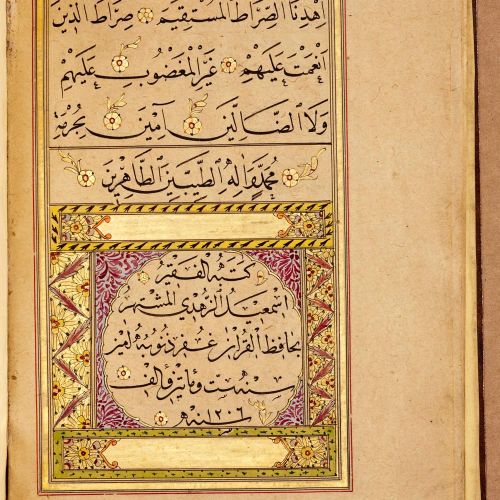 اِهْدِنَا الصِّرَاطَ الْمُسْتَقِيمَ صِرَاطَ الَّذِينَ
اَنْعَمْتَ عَلَيْهِمْ غَيْرِ الْمَغْضُوبِ عَلَيْهِمْ
وَلَا الضَّالِّينَ آمِينَ بِحُرْمَةِ
مُحَمَّدٍ وَآلِهِ الطَّيِّبِينَ الطَّاهِرِينَ
كتبه الفقير
اسمعيل الزهدي المشتهر
بحافظ القرآن غفر ذنوبه آمين
سنه ست ومأتين والف
سنه ١٢٠٦